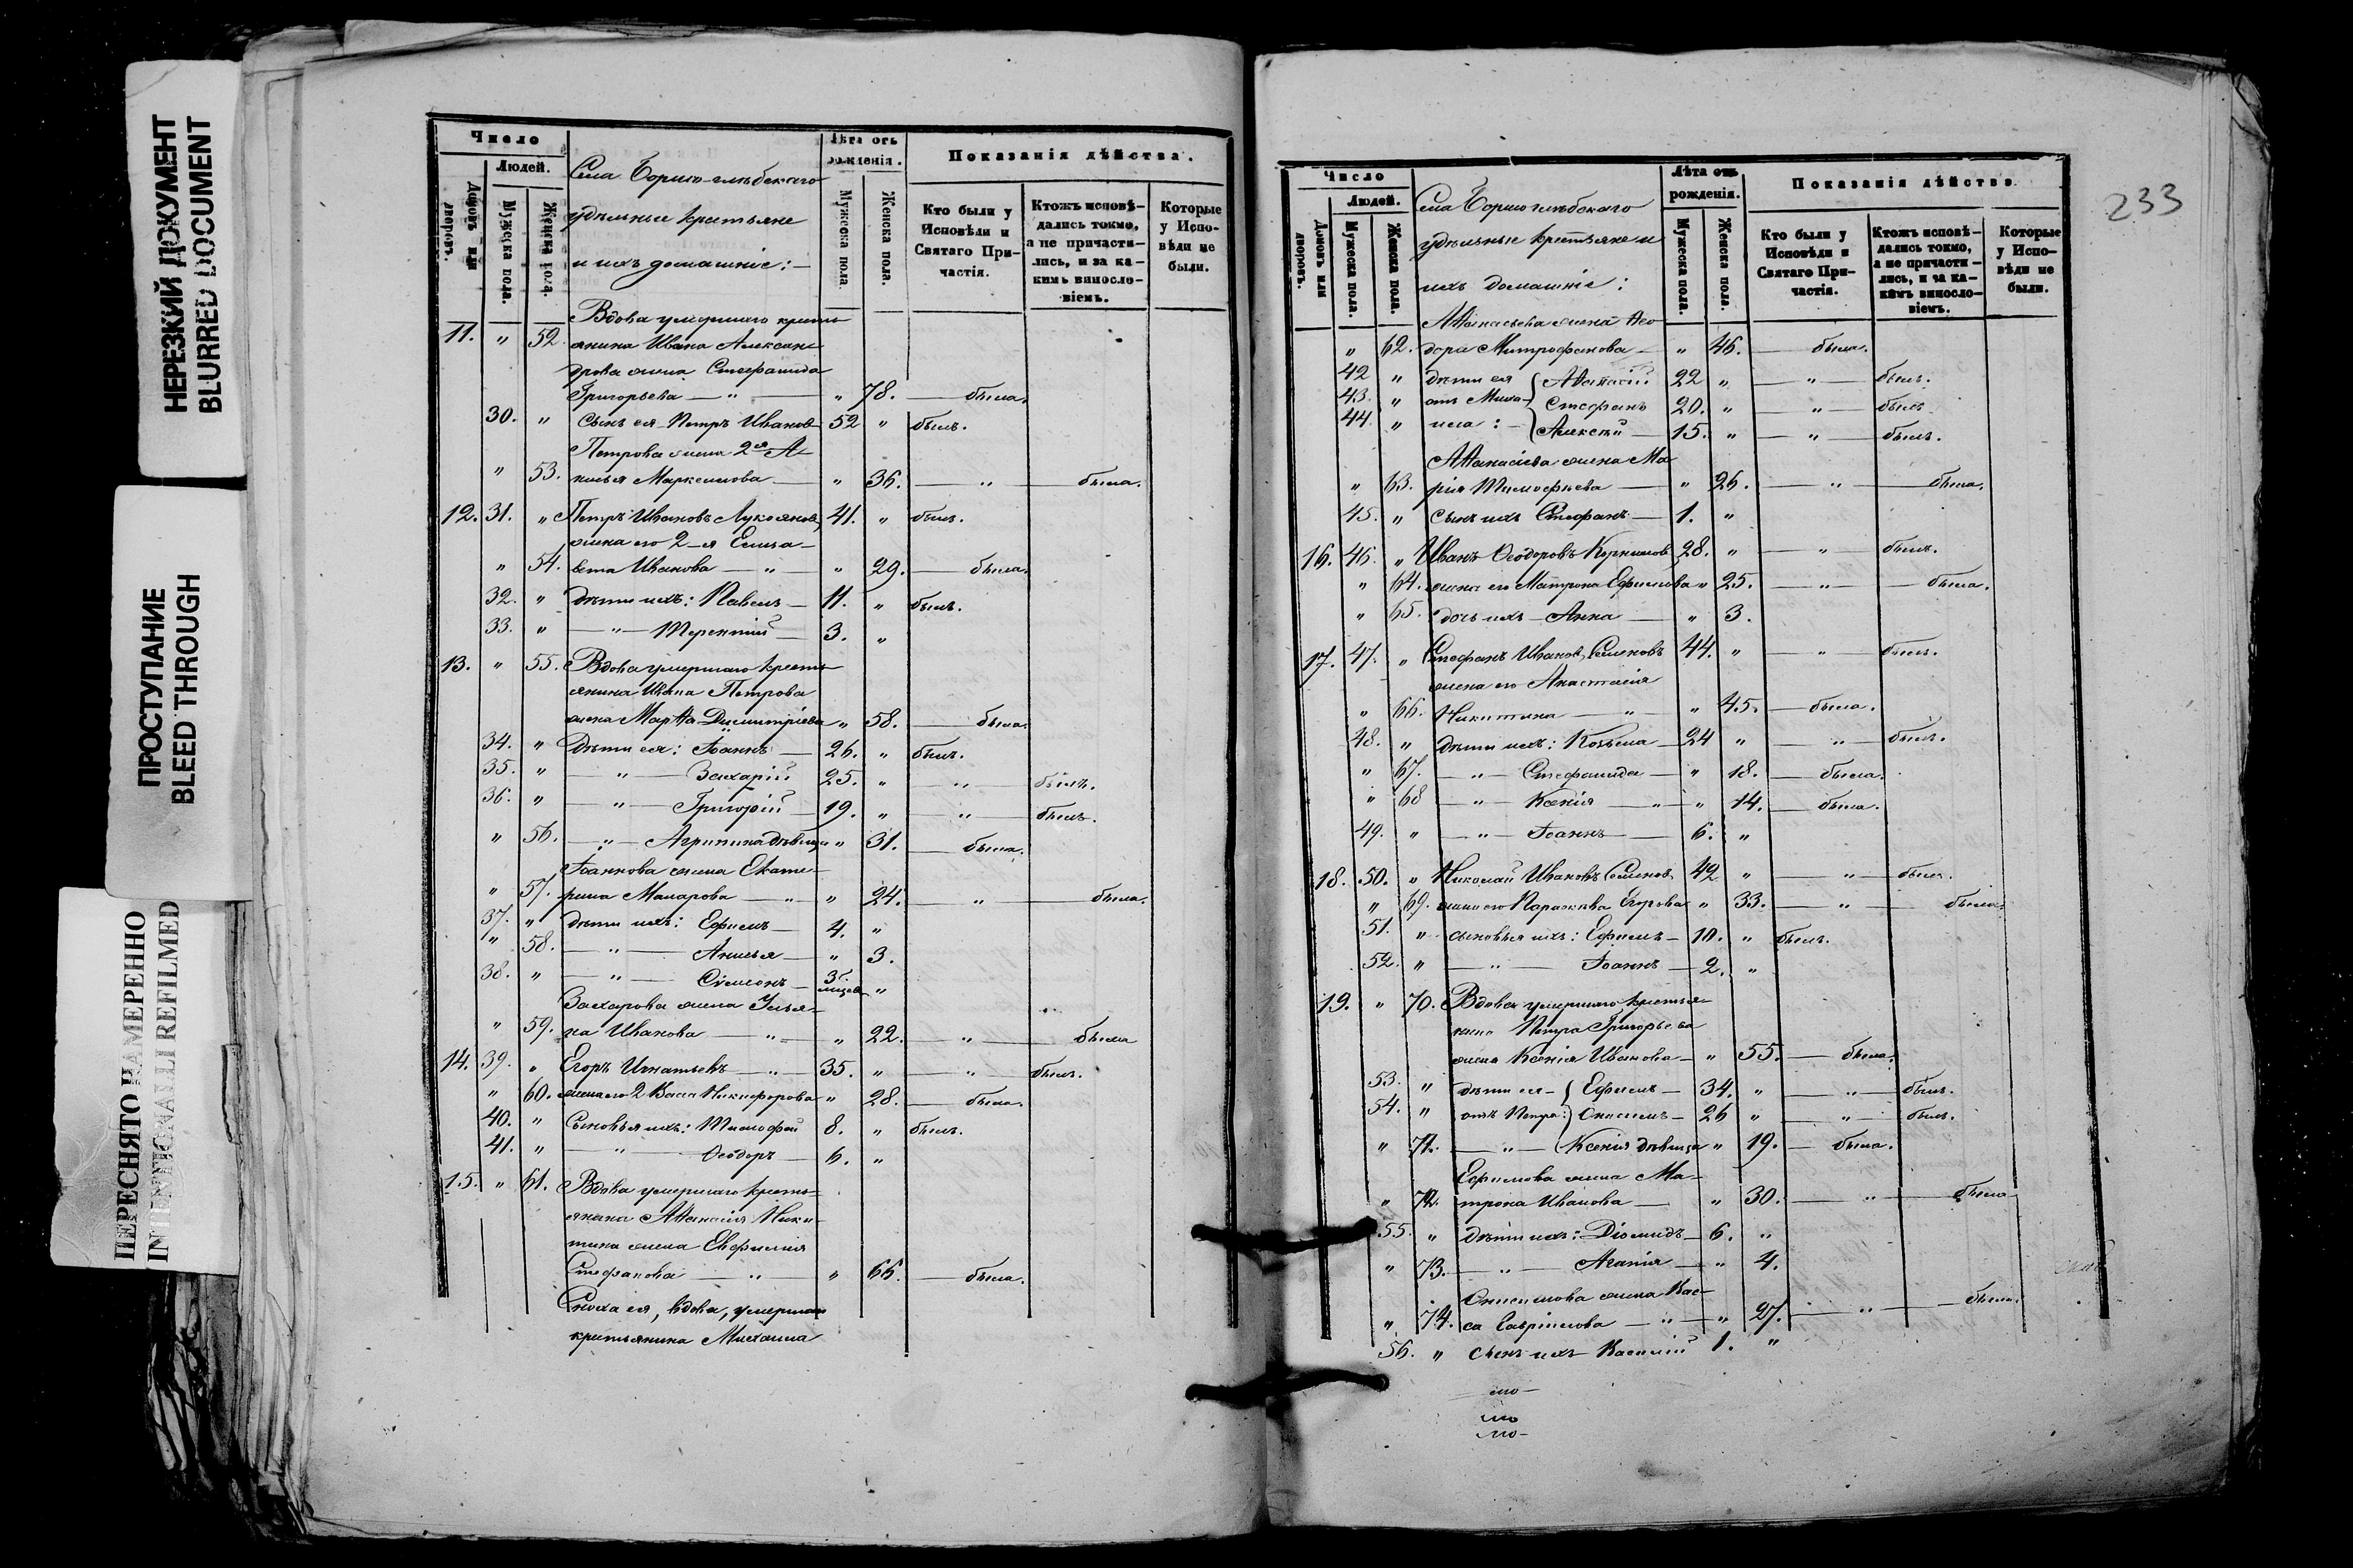 НЕРЕЗКИЙ ДОКУМЕНТ
BLURRED DOCUMENT
ПРОСТУПАНИЕ
BLEED THROUGH
ПЕРЕСНЯТО НАМЕРЕННО
INTENTIONALLI REFILMED
Число
Людей.
Домовъ или дворовъ.
Мужеска пола.
Женска пола.
Села Борисо-глѣбскаго
удѣльные крестьяне
и ихъ домашніе:
Лѣта отъ рожденія.
Мужеска пола
Женска пола.
Показанія дѣйства.
Кто были у Исповѣди и Святаго Причастія.
Ктожъ исповѣдались токмо, а не причастились, и за какимъ винословіемъ.
Которые у Исповѣди не были.
Вдова умершаго кресть-
11. " 52. янина Ивана Алексан-
дрова жена Стефанида
Григорьева — " — " 78. — была.
30. " Сынъ ея Петръ Ивановъ 52 " былъ.
Петрова жена 2я А-
" 53. килья Маркелова — " 36. — " — была.
12. 31. " Петръ Ивановъ Лукояновъ 41. " былъ.
жена его 2-я Елиса-
" 54. вета Иванова — " — " 29. — была.
32. " дѣти ихъ: Павелъ — 11. " былъ.
33. " — " — Терентій — 3. "
13. " 55. Вдова умершаго кресть-
янина Ивана Петрова
жена Марѳа Димитріева " 58. — была.
34. " Дѣти ея: Іоаннъ — 26. " былъ.
35. " — " — Захарій 25. " — " — былъ.
36. " — " — Григорій — 19. " — " — былъ.
" 56. — " — Агрипина дѣвица " 31. — была.
Іоаннова жена Екате-
" 57. рина Макарова — " — " 24. — " — была.
37. " дѣти ихъ: Ефимъ — 4. "
" 58. — " — Акилья — " 3.
38. " — " — Сѵмеонъ — 3 б. мцев "
Захарова жена Улья-
" 59. на Иванова — " — " 22. — " — была
14. 39. " Егоръ Игнатьевъ — " — 35. " — " — былъ.
" 60. жена его 2 Васса Никифорова " 28. — была.
40. " Сыновья ихъ: Тимофей 8. " былъ.
41. " — " — Ѳеодоръ — 6. "
15. " 61. Вдова умершаго кресть-
янина Аѳанасія Ники-
тина жена Евфимія
Стефанова — " — " 66. — была.
Сноха ея, вдова, умершаго
крестьянина Михаила
233
Число
Людей.
Домовъ или дворовъ.
Мужеска пола.
Женска пола.
Села Борисоглѣбскаго
удѣльные крестьяне и
ихъ домашніе:
Лѣта отъ рожденія.
Мужеска пола.
Женска пола.
Показанія дѣйства.
Кто были у Исповѣди и Святаго Причастія.
Ктожъ исповѣдались токмо, а не причастились, и за какимъ винословіемъ.
Которые у Исповѣди не были.
Аѳанасьева жена Ѳео-
" 62. дора Митрофанова — " 46. — была.
42 " дѣти ея Аѳанасій 22 " — " — былъ.
43. " отъ Миха- Стефанъ 20. " — " — былъ
44. " ила: — Алексѣй — 15. " — " — былъ.
Аѳанасіева жена Ма-
" 63. рія Тимофѣева — " 26. — " — была.
45. " сынъ ихъ Стефанъ — 1. "
16. 46. " Иванъ Ѳеодоровъ 28. " — " — былъ.
" 64. жена его Матрона Ефимова " 25. — " — была.
" 65. дочь ихъ — Анна — " 3.
17. 47. " Стефанъ Ивановъ Семеновъ 44. " — " — былъ.
жена его Анастасія
" 66. Никитина — " — " 45. — была.
48. " дѣти ихъ: Козьма — 24 " — " — былъ.
" 67. — " — Стефанида — " 18. — была.
" 68 — " — Ксенія — " — " 14. — была.
49. " — " — Іоаннъ — 6. "
18. 50. " Николай Ивановъ Семеновъ 42 " — " — былъ.
" 69. жена его Параскева Егорова " 33. — " — была.
51. " сыновья ихъ: Ефимъ — 10. " былъ.
52. " — " — Іоаннъ — 2. "
19. " 70. Вдова умершаго крестья-
нина Петра Григорьева
жена Ксенія Иванова — " 55. — была.
53. " дѣти ея — Ефимъ — 34. " — " — былъ.
54. " отъ Петра: Онисимъ — 26 " — " — былъ.
" 71. — " — Ксенія дѣвица " 19. — была.
Ефимова жена Ма-
" 72. трона Иванова — " 30. — " — была
55. " дѣти ихъ: Діомидъ — 6. "
" 73. — " — Агапія — " 4.
Онисимова жена Вас-
" 74. са Гавріилова — " — " 27. — " — была.
56. " сынъ ихъ Василій 1. "